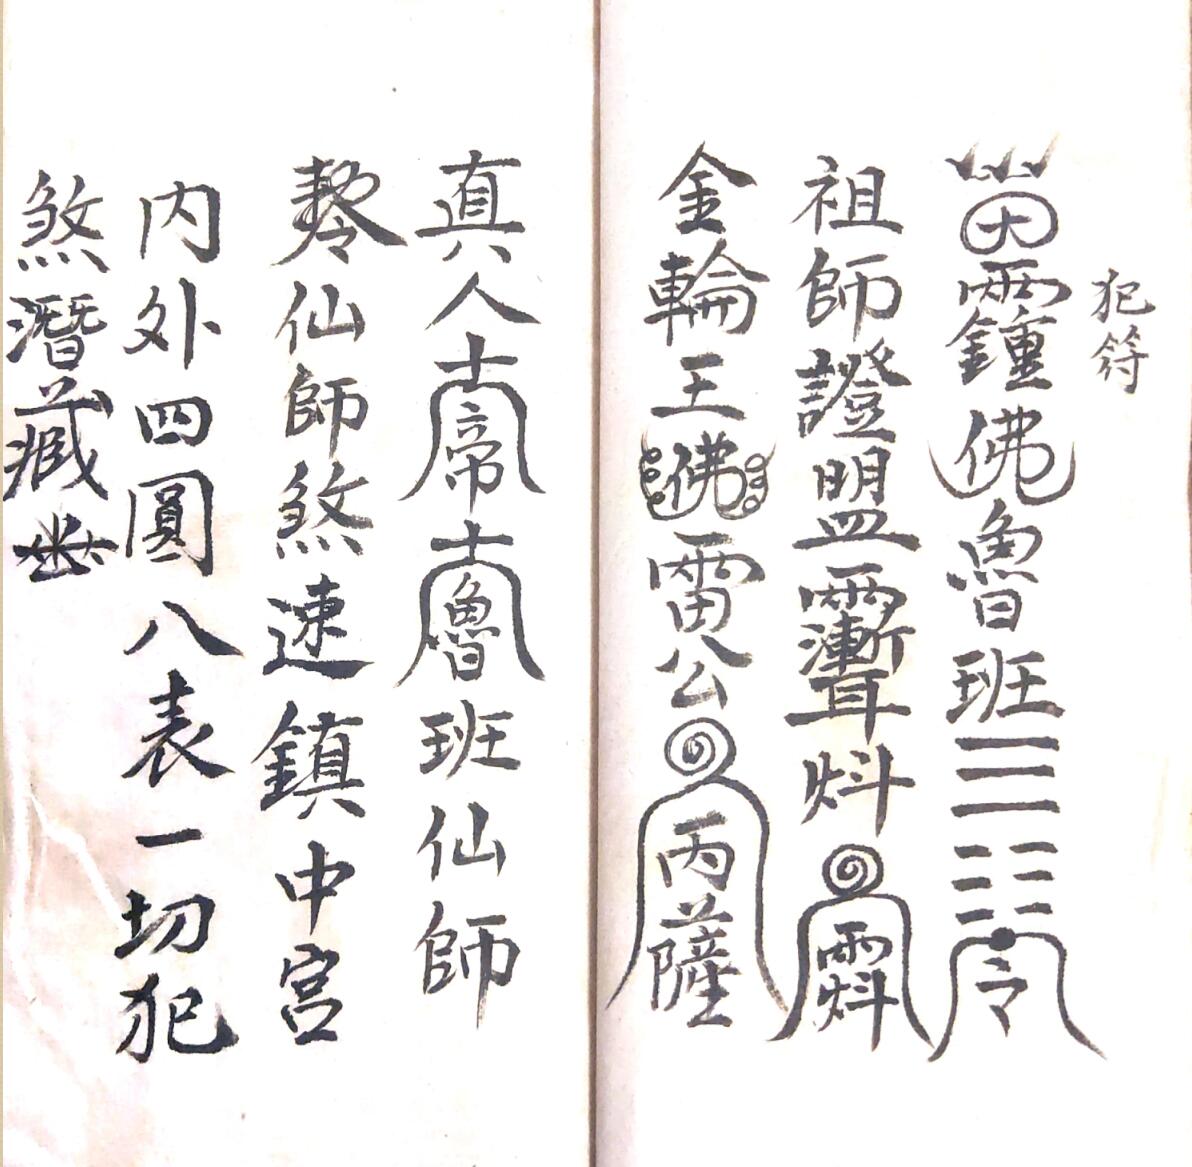 犯符
佛魯班令
祖師證盟
金輪王佛雷公丙薩
真人帝魯班仙師
仙師煞速鎮中宮
内外四圓八表一切犯
煞潛藏